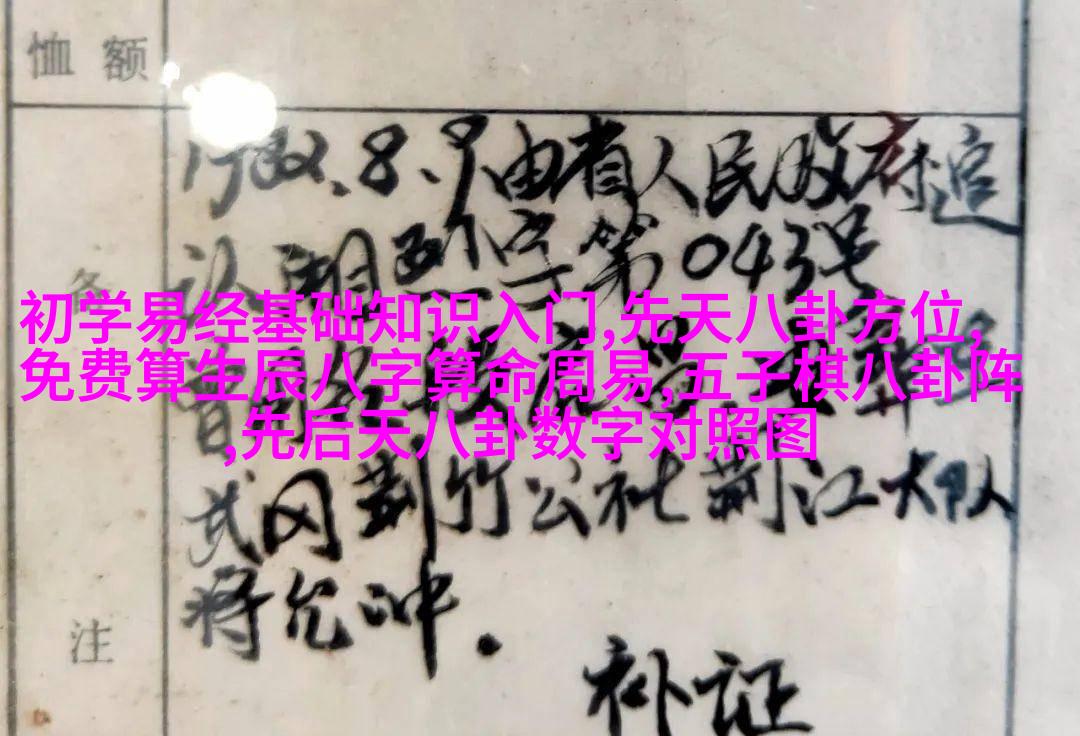 恤额
1982.8.9由省人民政府追
认,湘烈字第043号
备
初学易经基础知识入门,先天八卦方位,
免费算生辰八字算命周易,五子棋八卦阵
,先后天八卦数字对照图
武冈荆竹公社荆江大队
蒋允冲.
注
补证